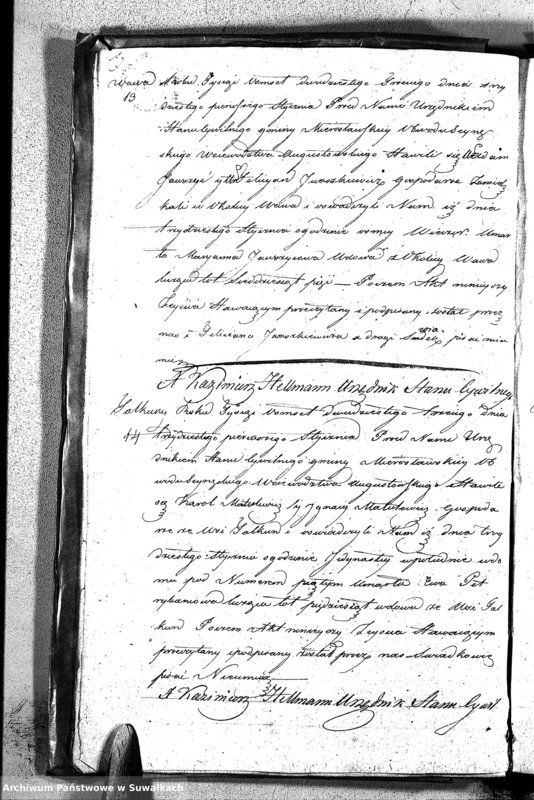 Wawa Roku Tysiąc Osmset dwudziestego trzeciego dnia trzy
13 dziestego pierwszego Stycznia Przed Nami Urzędnikiem
Stanu Cywilnego gminy Mirosławskiey Obwodu Seyneń
skiego Woiewództwa Augustowskiego Stawili się Adam
Jaworzyc y Felicyan Juraszkiewicz gospodarze Zamiesz
kali w Okolicy Wawa i oswiadczyli Nam iż dnia
trzydziestego Stycznia o godzinie osmey Wieczor. Umar
ła Maryanna Jaworzycowa Wdowa z Okolicy Wawa
licząca lat Sieddziesiąt pięć — Poczem Akt ninieyszy
Zeyscia Stawaiącym przeczytany i podpisany został przez
nas i Feliciana Juraszkiewicza a drugi Swiadek pisać nieu
mie
X Kazimierz Hellmann Urzędnik Stanu Cywilnego
Gałkuny Roku Tysiąc Osmset dwudziestego trzeciego dnia
14 trzydziestego pierwszego Stycznia Przed Nami Urzę
dnikiem Stanu Cywilnego gminy Mirosławskiey Ob
wodu Seynenskiego Woiewództwa Augustowskiego Stawili
się Karol Matulewicz y Ignacy Matulewicz Gospoda
rze ze Wsi Gałkun i oswiadczyli Nam iż dnia trzy
dziestego Stycznia o godzinie Jedynastey w południe w do
mu pod Numerem piątym Umarła Ewa Pet
rykaniowa licząca lat pięćdziesiąt wdowa ze Wsi Gał
kun Poczem Akt ninieyszy Zeyscia Stawaiącym
przeczytany i podpisany został przez nas Swiadkowie
pisać Nieumieią
X Kazimierz Hellmann Urzędnik Stanu Cywil
Archiwum Państwowe w Suwałkach